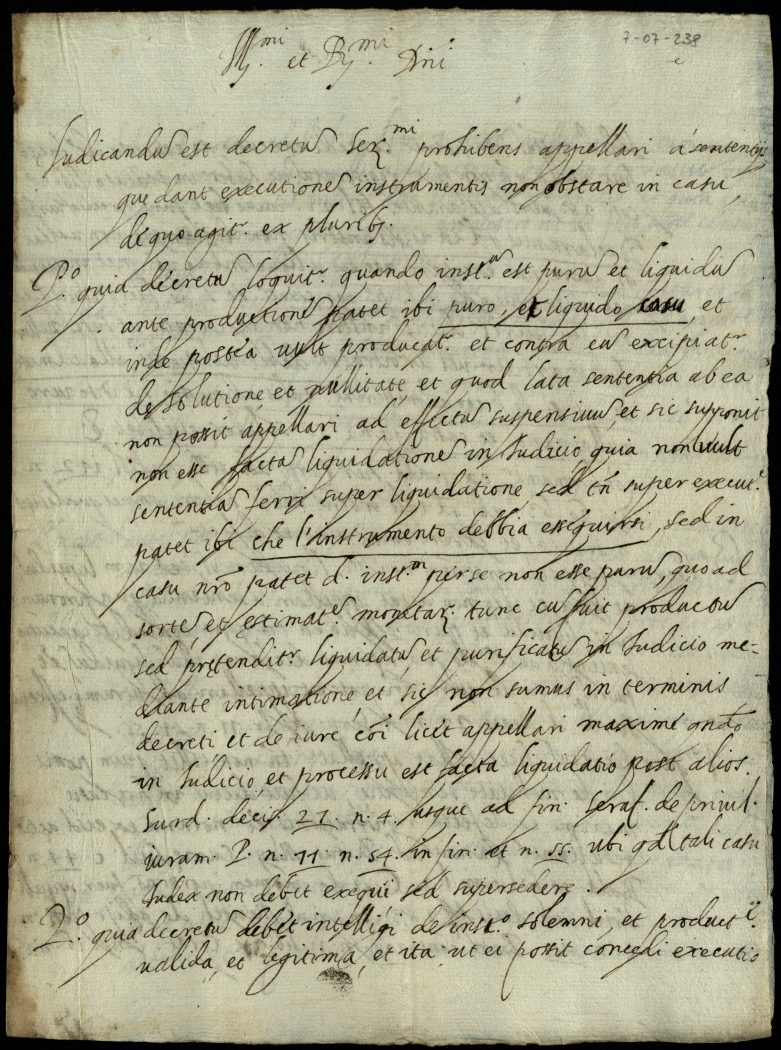 7-07-238
Ill.mi et R.mi Dni
Iudicandũ est decretũ Ser.mi prohibens appellari á sententijs
que dant executionẽ instrumentis non obstare in casu,
de quo agit.r ex plurib.
P.o quia decretũ loquit.r quando inst.m est purũ et liquidũ
ante productionẽ patet ibi puro, et liquido casu, et
inde postea vult producat.r et contra eũ excipiat.r
de solutione et nullitate, et quod lata sententia ab ea
non possit appellari ad effectũ suspensiuũ, et sic supponit
non esse factã liquidationẽ in Iudicio, quia non uult
sententiã ferri super liquidatione, sed tñ super execut.e
patet ibi che l'instrumento debbia essequirsi, sed in
casu nrõ patet d. inst.m per se non esse purũ, quo ad
sortẽ, et ęstimat.e monetar. tunc cũ fuit productũ
sed pretendit.r liquidatũ, et purificatũ in Iudicio me-
diante intimatione, et sic non sumus in terminis
decreti et de iure cõi licet appellari maximé qñdo
in Iudicio, et processu est facta liquidatio post alios.
Surd. decis. 21. n. 4. usque ad fin. Seraf. de priuil.
iuram. P. n. 71. n. 54. in fin. et n. 55. ubi qd tali casu
Iudex non debet exequi sed supersedere.
2.o quia decretũ debet intelligi de inst.o solemni, et product.e
ualida, et legitima, et ita ut ei possit concedi executio